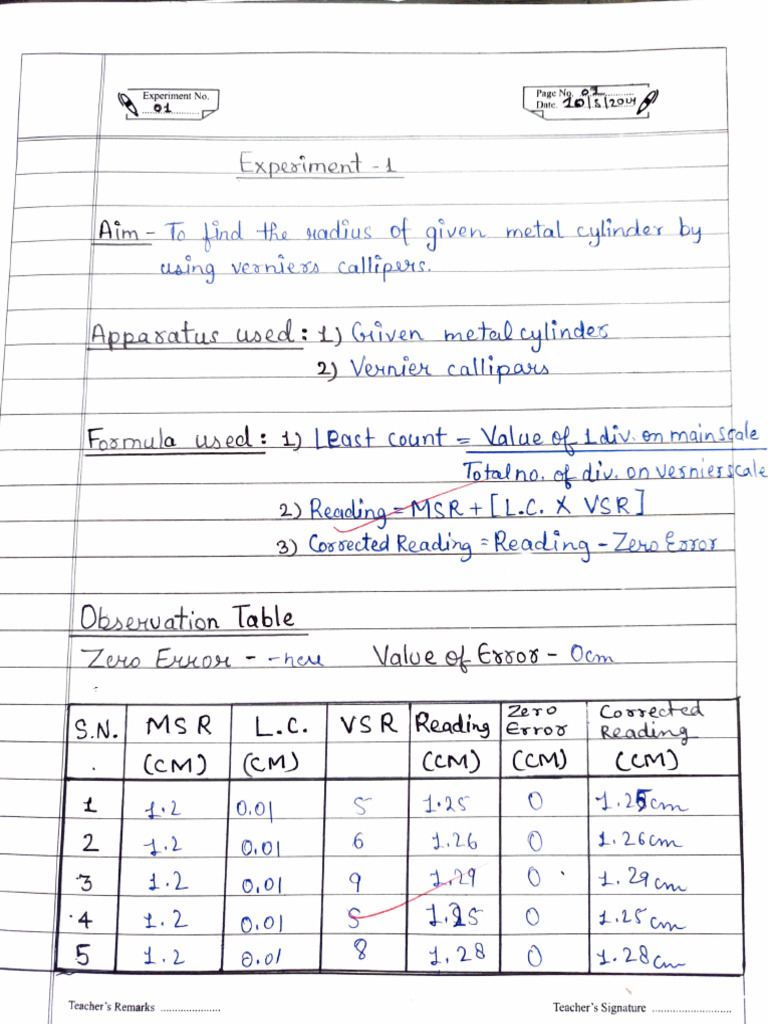 Experiment No.
01
Page No. 01
Date. 10/5/2024
Experiment - 1
Aim - To find the radius of given metal cylinder by
using verniers callipers.
Apparatus used : 1) Given metal cylinder
2) Vernier callipars
Formula used : 1) Least count = Value of 1 div. on main scale
Total no. of div. on vernier scale
2) Reading = MSR + [L.C. X VSR]
3) Corrected Reading = Reading - Zero Error
Observation Table
Zero Error - Value of Error - 0cm
S.N. MSR (CM) L.C. (CM) VSR Reading (CM) Zero Error (CM) Corrected Reading (CM)
1 1.2 0.01 5 1.25 0 1.25cm
2 1.2 0.01 6 1.26 0 1.26cm
3 1.2 0.01 9 1.29 0 1.29cm
4 1.2 0.01 5 1.25 0 1.25cm
5 1.2 0.01 8 1.28 0 1.28cm
Teacher's Remarks ..................... Teacher's Signature ............................